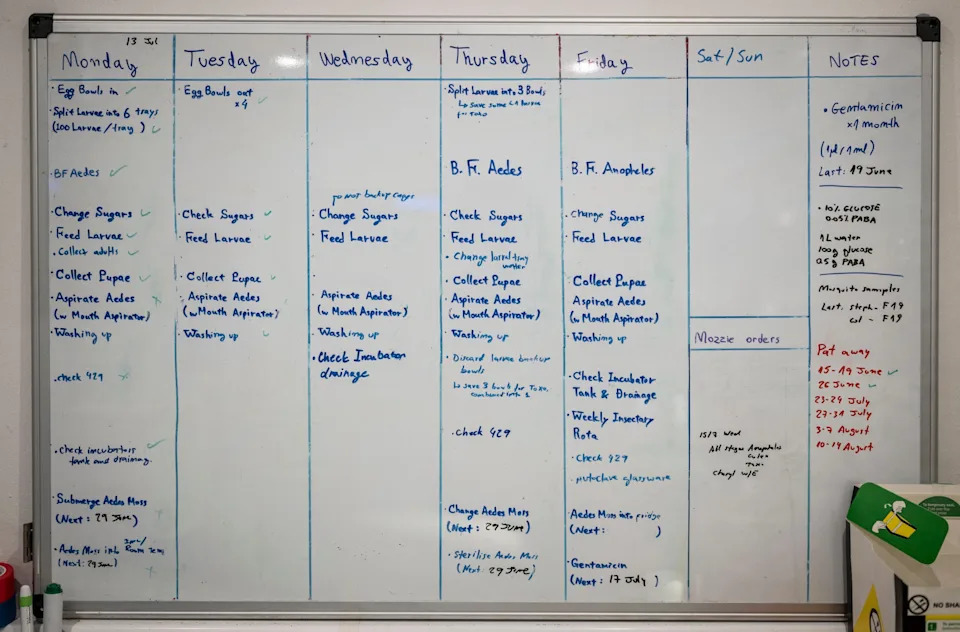 13 Jul
Monday
· Egg Bowls in ✓
· Split Larvae into 6 trays
(100 Larvae/tray) ✓
· BF Aedes ✓
· Change Sugars ✓
· Feed Larvae ✓
· Collect adults ✓
· Collect Pupae ✓
· Aspirate Aedes
(w Mouth Aspirator)
· Washing up
· check 429
· check incubators
tank and draining. ✓
· Submerge Aedes Moss
(Next: 29 June)
· Aedes Moss into
Room Tem
(Next: 29 June)
Tuesday
· Egg Bowls out
x4 ✓
· Check Sugars ✓
· Feed Larvae ✓
· Collect Pupae ✓
· Aspirate Aedes
(w Mouth Aspirator)
· Washing up ✓
Wednesday
DO NOT backup cages
· Change Sugars
· Feed Larvae
· Aspirate Aedes
(w Mouth Aspirator)
· Washing up
· Check Incubator
drainage
Thursday
· Split Larvae into 3 Bowls
↳ save some L1 larvae
for TOXO
B. F. Aedes
· Check Sugars
· Feed Larvae
· Change larval tray
water
· Collect Pupae
· Aspirate Aedes
(w Mouth Aspirator)
· Washing up
· Discard larvae backup
bowls
↳ save 3 bowls for Toxo,
combined into 1
· Check 429
· Change Aedes Moss
(Next: 29 JUNE)
· Sterilise Aedes Moss
(Next: 29 June)
Friday
B. F. Anopheles
· Change Sugars
· Feed Larvae
· Collect Pupae
· Aspirate Aedes
(w Mouth Aspirator)
· Washing up
· Check Incubator
Tank & Drainage
· Weekly Insectary
Rota
· Check 429
· Autoclave glassware
· Aedes Moss into fridge
(Next: )
· Gentamicin
(Next: 17 July)
Sat/Sun
Mozzie orders
15/7 Wed
All stages Anopheles
Culex
Toxo
Cheryl w/E
NOTES
· Gentamicin
x1 month
(1µl/1ml)
Last: 19 June
· 10% GLUCOSE
0.05% PABA
1L water
100g glucose
0.5g PABA
Mosquito samples
Last. steph. - F19
Col - F19
Pat away
15-19 June ✓
26 June ✓
23-24 July
27-31 July
3-7 August
10-14 August
NO SHA